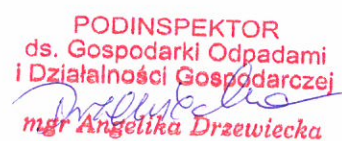 PODINSPEKTOR
ds. Gospodarki Odpadami
i Działalności Gospodarczej
mgr Angelika Drzewiecka